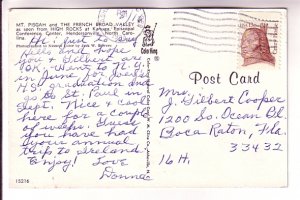 MT. PISGAH and THE FRENCH BROAD VALLEY
as seen from HIGH ROCKS at Kanuga Episcopal
Conference Center, Hendersonville, North Caro-
lina.
Photographed in Natural Color by
Hi! Just to say
hello and hope
you & Gilbert are
"OK". Went to
in June for
HS. graduation and
St. Paul in
Sept. Nice & cool
here for a couple
of weeks. Guess
you have had
your annual
trip to Ireland.
Enjoy! Love
Donna
15216
Color King
Post Card
Mrs.
J. Gilbert Cooper
1200 So. Ocean Blvd.
Boca Raton, Fla.
33432
16 H.